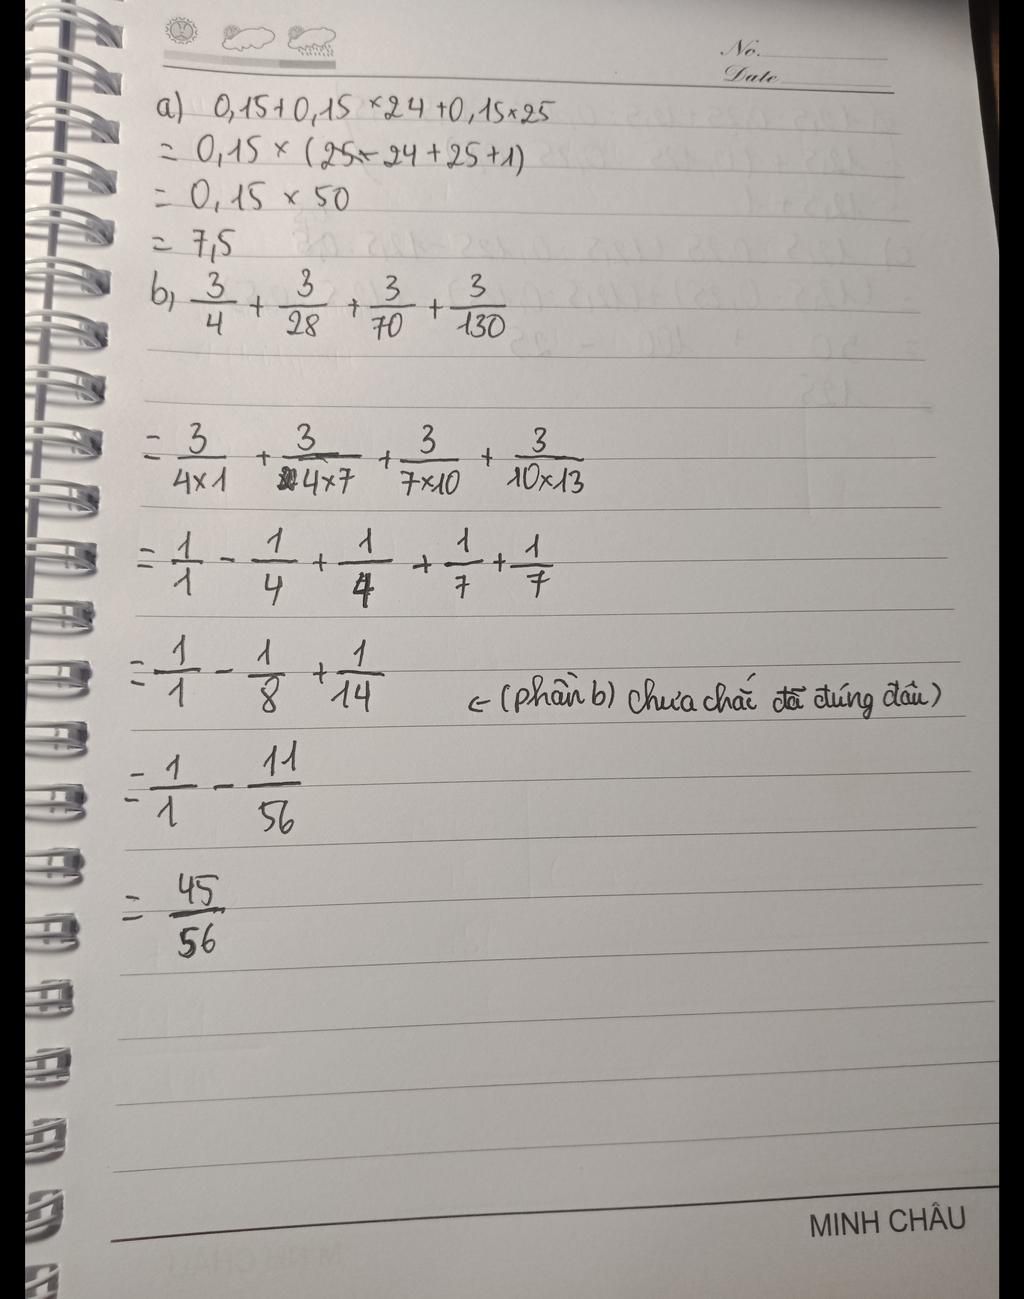 No.
Date
a) 0,15+0,15 × 24 + 0,15×25
= 0,15 × (25 - 24 + 25 + 1)
= 0,15 × 50
= 7,5
b, 3/4 + 3/28 + 3/70 + 3/130
= 3/4×1 + 3/4×7 + 3/7×10 + 3/10×13
= 1/1 - 1/4 + 1/4 + 1/7 + 1/7
= 1/1 - 1/8 + 1/14 ← (phần b) chưa chắc đã đúng đâu)
= 1/1 - 11/56
= 45/56
MINH CHÂU